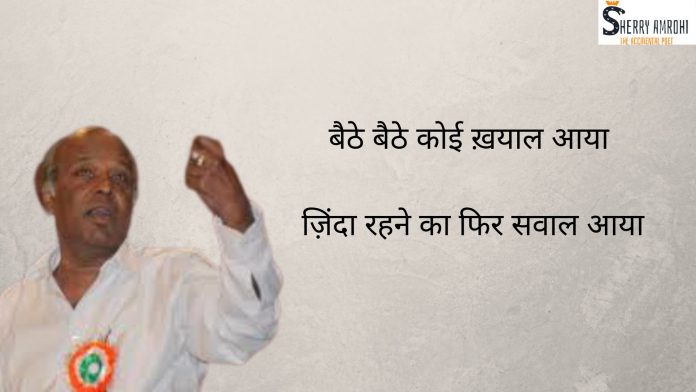 SHERRY AMROHI
THE ACCIDENTAL POET
बैठे बैठे कोई ख़याल आया
ज़िंदा रहने का फिर सवाल आया